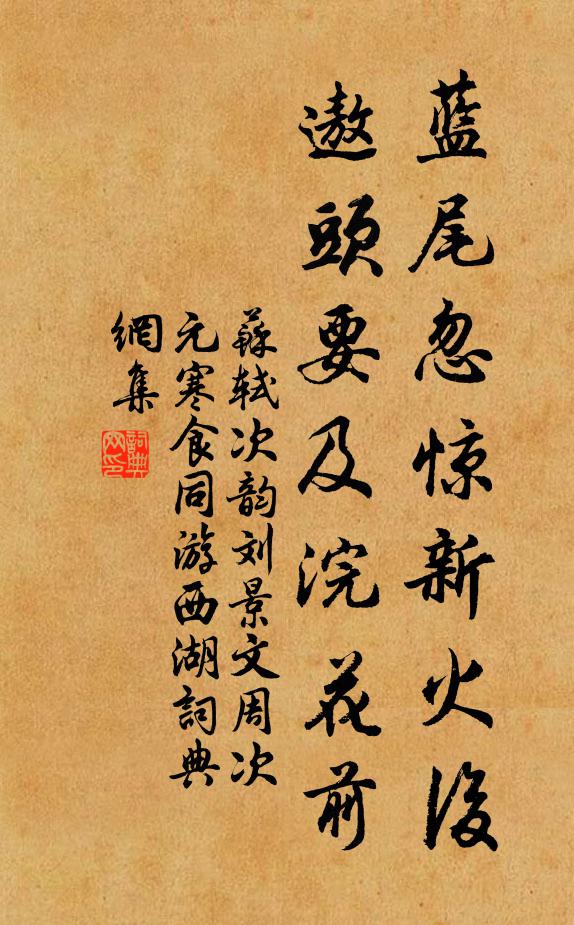 蓝尾忽惊新火後
遨頭要及浣花前
蘇轼次韵刘景文周次
元寒食同游西湖詞典
網集
詞典
网印